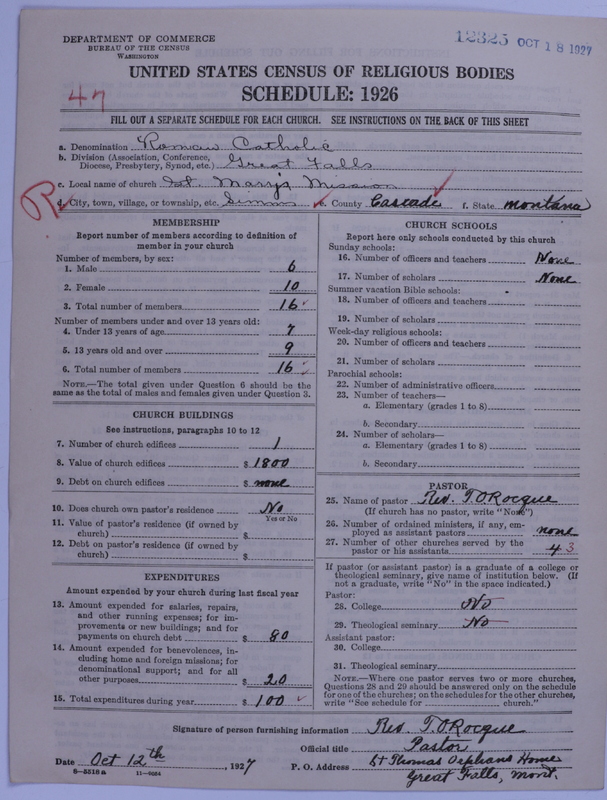 DEPARTMENT OF COMMERCE
BUREAU OF THE CENSUS
WASHINGTON
12325 OCT 18 1927
UNITED STATES CENSUS OF RELIGIOUS BODIES
47
SCHEDULE: 1926
FILL OUT A SEPARATE SCHEDULE FOR EACH CHURCH. SEE INSTRUCTIONS ON THE BACK OF THIS SHEET
a. Denomination Roman Catholic
b. Division (Association, Conference, Diocese, Presbytery, Synod, etc.) Great Falls
c. Local name of church St. Mary's Mission
R
d. City, town, village, or township, etc. Simms e. County Cascade f. State Montana
MEMBERSHIP
Report number of members according to definition of
member in your church
Number of members, by sex:
1. Male 6
2. Female 10
3. Total number of members 16
Number of members under and over 13 years old:
4. Under 13 years of age 7
5. 13 years old and over 9
6. Total number of members 16
NOTE.—The total given under Question 6 should be the
same as the total of males and females given under Question 3.
CHURCH BUILDINGS
See instructions, paragraphs 10 to 12
7. Number of church edifices 1
8. Value of church edifices $ 1800
9. Debt on church edifices $ none
10. Does church own pastor's residence No
Yes or No
11. Value of pastor's residence (if owned by
church) $
12. Debt on pastor's residence (if owned by
church) $
EXPENDITURES
Amount expended by your church during last fiscal year
13. Amount expended for salaries, repairs,
and other running expenses; for im-
provements or new buildings; and for
payments on church debt $ 80
14. Amount expended for benevolences, in-
cluding home and foreign missions; for
denominational support; and for all
other purposes $ 20
15. Total expenditures during year $ 100
CHURCH SCHOOLS
Report here only schools conducted by this church
Sunday schools:
16. Number of officers and teachers None
17. Number of scholars None
Summer vacation Bible schools:
18. Number of officers and teachers
19. Number of scholars
Week-day religious schools:
20. Number of officers and teachers
21. Number of scholars
Parochial schools:
22. Number of administrative officers
23. Number of teachers—
a. Elementary (grades 1 to 8)
b. Secondary
24. Number of scholars—
a. Elementary (grades 1 to 8)
b. Secondary
PASTOR
25. Name of pastor Rev. T. O'Rocque
(If church has no pastor, write "None")
26. Number of ordained ministers, if any, em-
ployed as assistant pastors none
27. Number of other churches served by the
pastor or his assistants 4 3
If pastor (or assistant pastor) is a graduate of a college or
theological seminary, give name of institution below. (If
not a graduate, write "No" in the space indicated.)
Pastor:
28. College No
29. Theological seminary No
Assistant pastor:
30. College
31. Theological seminary
NOTE.—Where one pastor serves two or more churches,
Questions 28 and 29 should be answered only on the schedule
for one of the churches; on the schedules for the other churches,
write "See schedule for church."
Signature of person furnishing information Rev. T. O'Rocque
Official title Pastor
Date Oct 12th, 1927 P. O. Address St Thomas Orphans Home
8—5518a 11—9664 Great Falls, Mont.